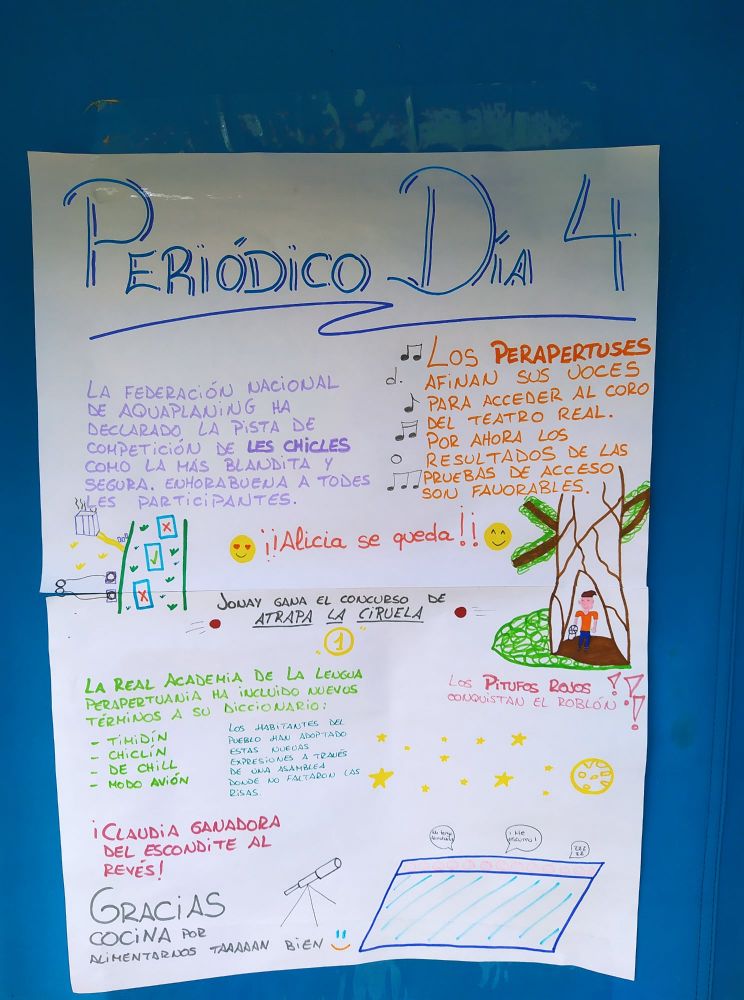 PERIÓDICO DÍA 4
LA FEDERACIÓN NACIONAL
DE AQUAPLANING HA
DECLARADO LA PISTA DE
COMPETICIÓN DE LES CHICLES
COMO LA MÁS BLANDITA Y
SEGURA. ENHORABUENA A TODES
LES PARTICIPANTES.
LOS PERAPERTUSES
AFINAN SUS VOCES
PARA ACCEDER AL CORO
DEL TEATRO REAL.
POR AHORA LOS
RESULTADOS DE LAS
PRUEBAS DE ACCESO
SON FAVORABLES.
¡¡Alicia se queda!!
JONAY GANA EL CONCURSO DE
ATRAPA LA CIRUELA
1
LA REAL ACADEMIA DE LA LENGUA
PERAPERTUANIA HA INCLUIDO NUEVOS
TÉRMINOS A SU DICCIONARIO:
- TIMIDÍN
- CHICLÍN
- DE CHILL
- MODO AVIÓN
LOS HABITANTES DEL
PUEBLO HAN ADOPTADO
ESTAS NUEVAS
EXPRESIONES A TRAVÉS
DE UNA ASAMBLEA
DONDE NO FALTARON LAS
RISAS.
LOS PITUFOS ROJOS
CONQUISTAN EL ROBLÓN!!
¡CLAUDIA GANADORA
DEL ESCONDITE AL
REVÉS!
GRACIAS
COCINA POR
ALIMENTARNOS TAAAAAN BIEN
¡Me
zzz
zz